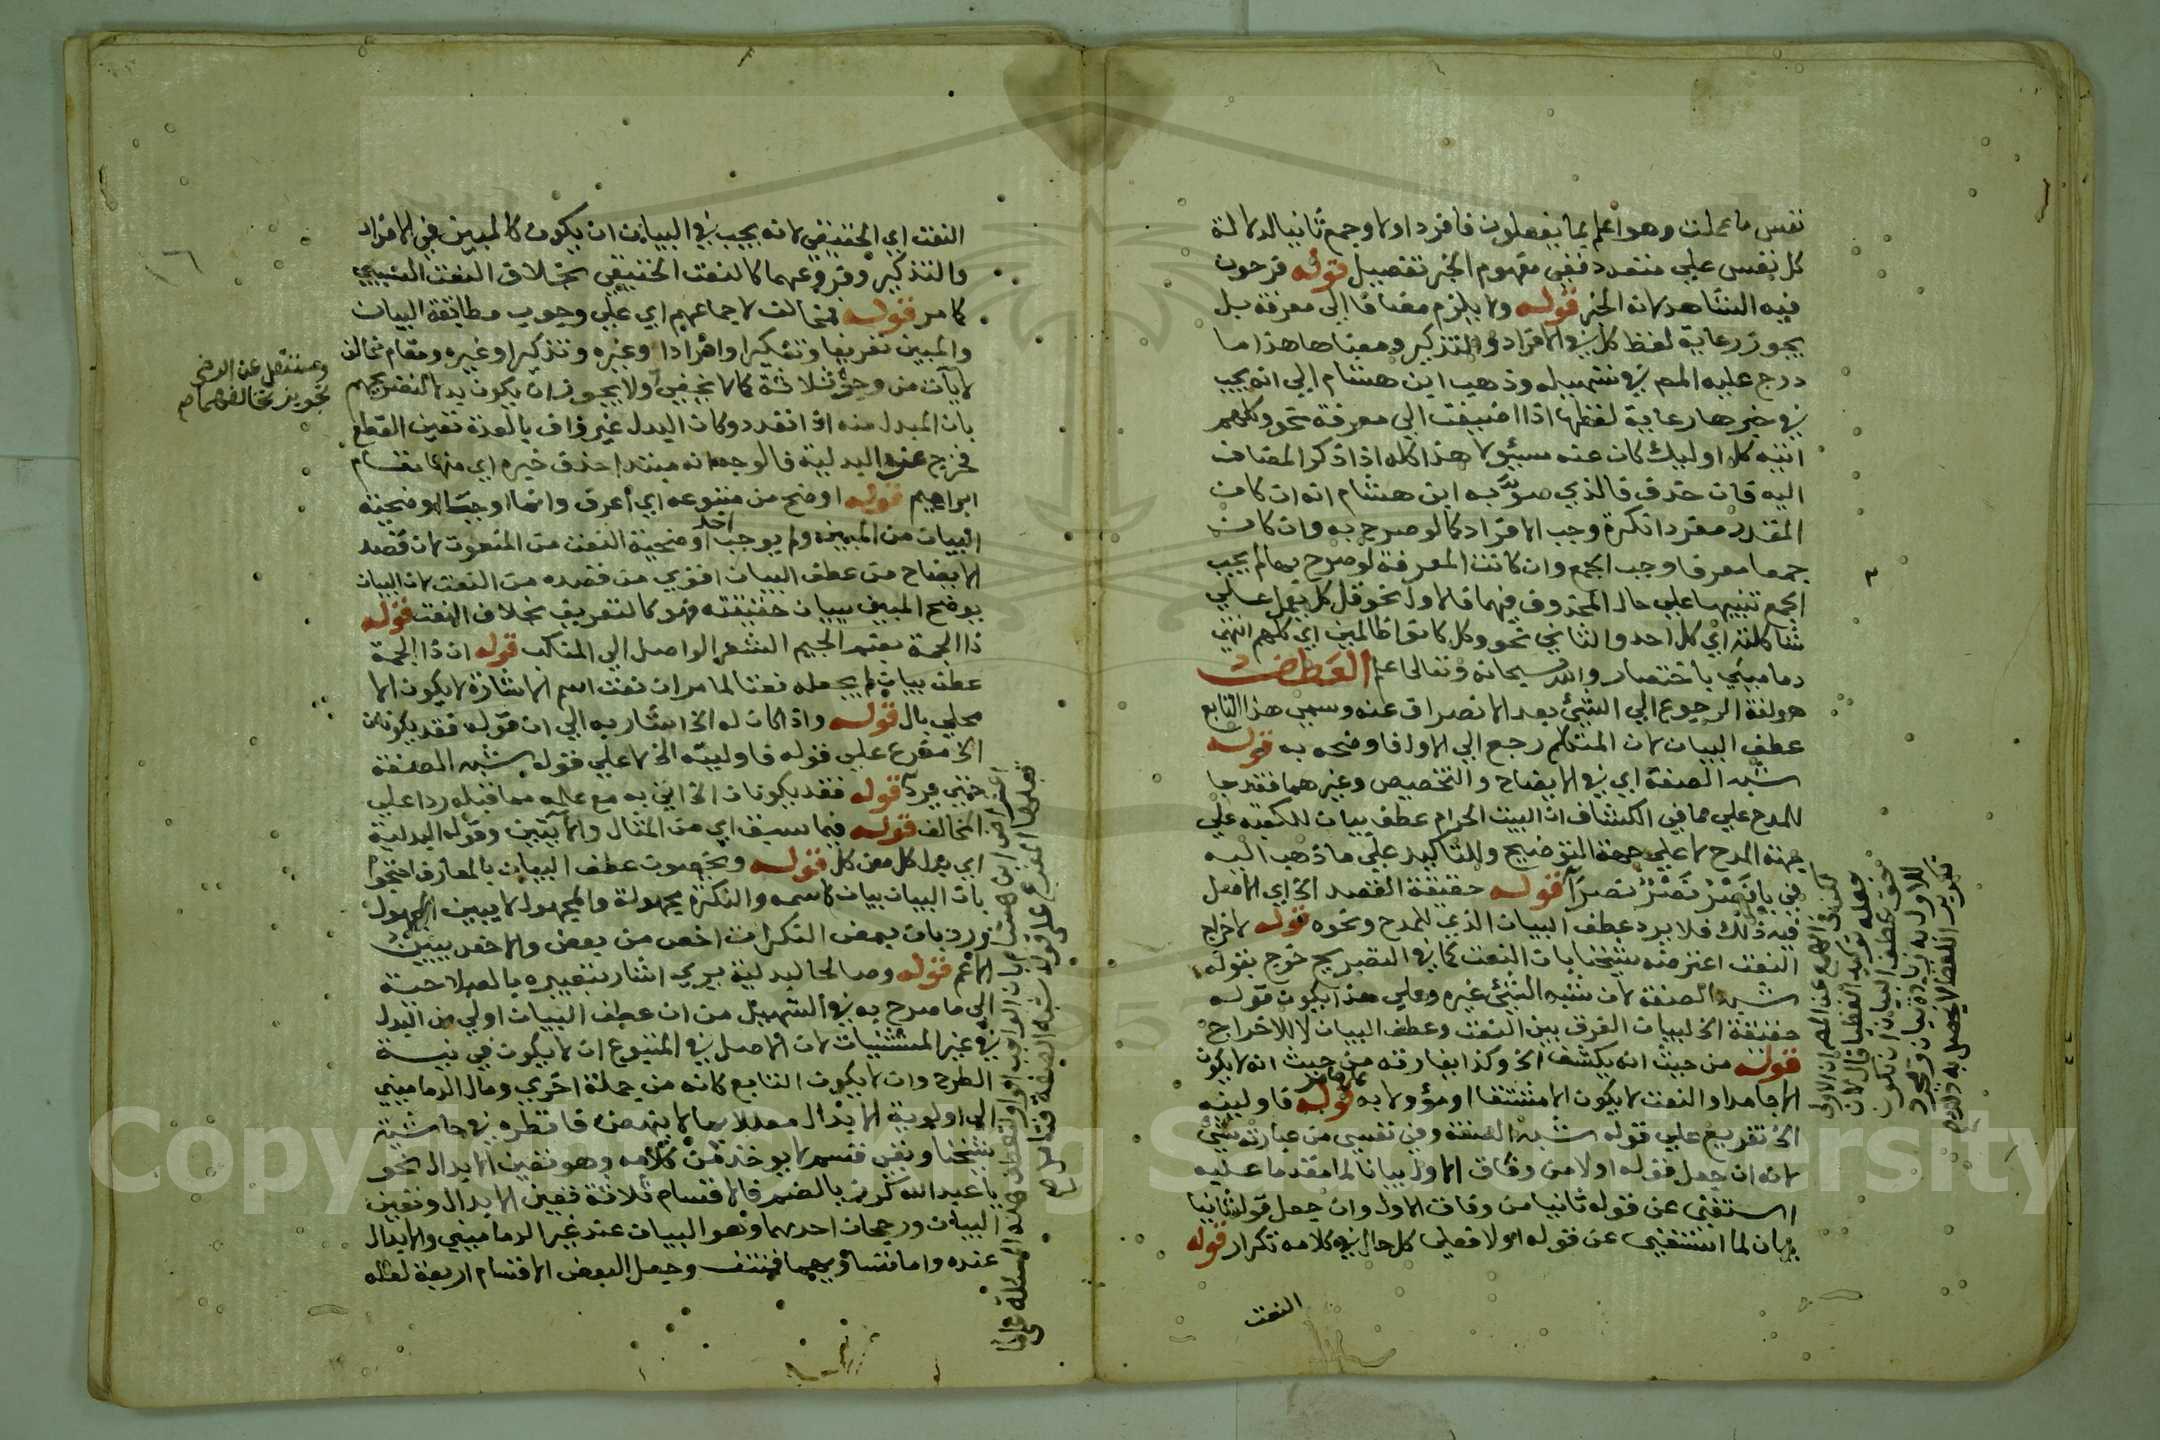 نفس ما عملت وهو اعلم بما يفعلون فافرد اولا وجمع ثانيا لدلالة
كل نفس علي متعدد ففي مفهوم الخبر تفصيل قوله فرحون
فيه الشاهد لانه الخبر قوله ولا يلزم مضافا الي معرفة بل
يجوز رعاية لفظ كل في الافراد والتذكير ومعناها هذا ما
درج عليه المص في تسهيله وذهب ابن هشام الي انه يجب
في خبرها رعاية لفظها اذا اضيفت الي معرفة نحو وكلهم
اتيه كل اوليك كان عنه مسئولا هذا كله اذا ذكر المضاف
اليه فان حذف فالذي صوبه ابن هشام انه ان كان
المقدر مفردا نكرة وجب الافراد كما لو صرح به وان كان
جمعا معرفا وجب الجمع وان كانت المعرفة لو صرح بها لم يجب
الجمع تنبيها علي حال المحذوف فيهما فالاول نحو قل كل يعمل علي
شاكلته اي كل احد والثاني نحو وكل كانوا ظالمين اي كلهم انتهي
دماميني باختصار والله سبحانه وتعالي اعلم العطف
هو لغة الرجوع الي الشيء بعد الانصراف عنه وسمي هذا التابع
عطف البيان لان المتكلم رجع الي الاول فاوضحه به قوله
شبه الصفة اي في الايضاح والتخصيص وغيرهما فقد جا
للمدح علي ما في الكشاف ان البيت الحرام عطف بيان للكعبة علي
جهة المدح لا علي جهة التوضيح وللتاكيد علي ما ذهب اليه
في يا نصر نصر نصرا قوله حقيقة القصد الخ اي الاصل
فيه ذلك فلا يرد عطف البيان الذي للمدح ونحوه قوله لاخراج
النعت اعترضه شيخنا بان النعت كما في التصريح خرج بقوله
شبه الصفة لان شبه الشيء غيره وعلي هذا يكون قوله
حقيقة الخ لبيان الفرق بين النعت وعطف البيان لا للاخراج
قوله من حيث انه يكشف الخ وكذا يفارقه من حيث انه لا يكون
الا جامدا والنعت لا يكون الا مشتقا او مؤولا به كما مر قوله فاولينه
الخ تفريع علي قوله شبه الصفة وفي نفسي من عبارته شيء
لانه ان جعل قوله اولا من وفاق الاول بيانا لما مقدما عليه
استغني عن قوله ثانيا من وفاق الاول وان جعل قوله ثانيا
بيان لما استغني عن قوله اولا فعلي كل حال في كلامه تكرار قوله
النعت
٣
لكن في الهمع عن المص ان الاولي
جعله توكيدا لفظيا قال لان
حق عطف البيان ان يكون
للاول به زيادة بيان ومجرد
تكرير اللفظ لا يحصل به ذلك
النعت اي الحقيقي لانه يجب في البيان ان يكون كالمبين في الافراد
والتذكير وفروعهما كالنعت الحقيقي بخلاف النعت السببي
كما مر قوله مخالف لاجماعهم اي علي وجوب مطابقة البيان
والمبين تعريفا وتنكيرا وافرادا وغيره وتذكيرا وغيره ومقام مخالف
لايات من وجوه ثلاثة كما لا يخفي ولا يجوز ان يكون بدلا لتصريحهم
بان المبدل منه اذا تعدد وكان البدل غير واف بالعدة تعين القطع
فخرج عن البدلية فالوجه انه مبتدا حذف خبره اي منها مقام
ابراهيم قوله اوضح من متبوعه اي اعرف وانما اوجب اوضحية
البيان من المبين ولم يوجب احد اوضحية النعت من المنعوت لان قصد
الايضاح من عطف البيان اقوي من قصده من النعت لان البيان
يوضح المبين ببيان حقيقته فهو كالتعريف بخلاف النعت قوله
ذا الجمة بضم الجيم الشعر الواصل الي المنكب قوله ان ذا الجمة
عطف بيان لم يجعله نعتا لما مر ان نعت اسم الاشارة لا يكون الا
محلي بال قوله واذا كان له الخ اشار به الي ان قوله فقد يكونان
الخ مفرع علي قوله فاولينه الخ لا علي قوله شبه الصفة
حتي يرد قوله فقد يكونان الخ اتي به مع علمه مما قبله ردا علي
المخالف قوله فيما سبق اي من المثال والايتين وقوله البدلية
اي بدل كل من كل قوله ويخصون عطف البيان بالمعارف احتجوا
بان البيان بيان كاسمه والنكرة مجهولة والمجهول لا يبين المجهول
ورد بان بعض النكرات اخص من بعض والاخص يبين
الاعم قوله وصالحا لبدلية يري اشار بتعبيره بالصلاحية
الي ما صرح به في التسهيل من ان عطف البيان اولي من البدل
في غير المستثنيات لان الاصل في المتبوع ان لا يكون في نية
الطرح وان لا يكون التابع كانه من جملة اخري ومال الدماميني
الي اولوية الابدال معللا بما لا ينهض فانظره في حاشية
شيخنا وبقي قسم لا يوخذ من كلامه وهو تعين الابدال نحو
يا عبد الله كرز بالضم فالاقسام ثلاثة تعين الابدال وتعين
البيان ورجحان احدهما وهو البيان عند غير الدماميني والابدال
عنده واما تساويهما فمنتف وجعل البعض الاقسام اربعة لعله
١٦
وسننقل عن الرضي
تجويز تخالفهما م